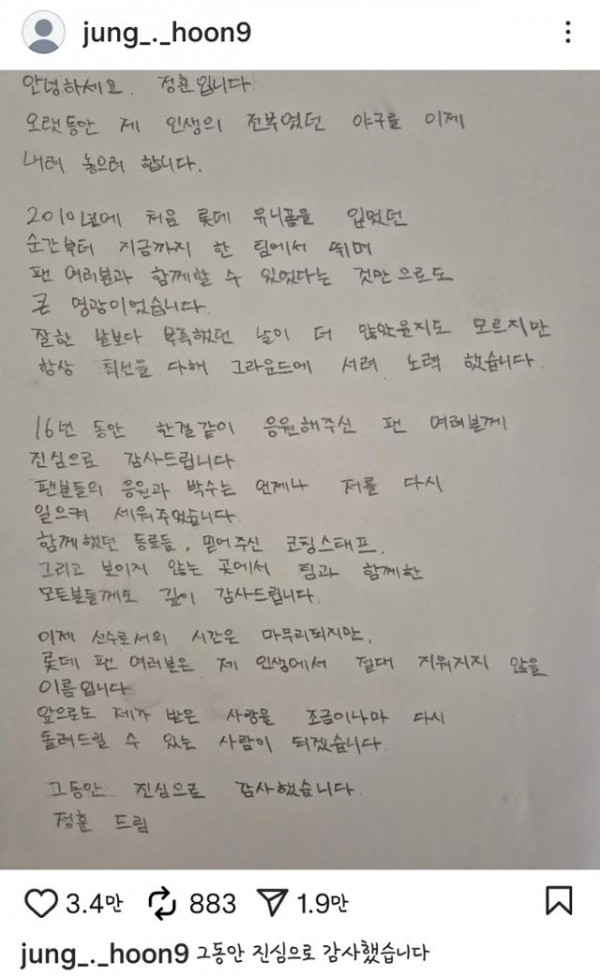 jung_._hoon9
안녕하세요. 정훈입니다
오랫동안 제 인생의 전부였던 야구를 이제
내려 놓으려 합니다.
2010년에 처음 롯데 유니폼을 입었던
순간부터 지금까지 한 팀에서 뛰며
팬 여러분과 함께할 수 있었다는 것만으로도
큰 영광이었습니다.
잘한 날보다 부족했던 날이 더 많았을지도 모르지만
항상 최선을 다해 그라운드에 서려 노력 했습니다.
16년 동안 한결같이 응원해주신 팬 여러분께
진심으로 감사드립니다.
팬분들의 응원과 박수는 언제나 저를 다시
일으켜 세워주었습니다.
함께했던 동료들, 믿어주신 코칭스태프,
그리고 보이지 않는 곳에서 팀과 함께한
모든분들께도 깊이 감사드립니다.
이제 선수로서의 시간은 마무리되지만,
롯데 팬 여러분은 제 인생에서 절대 지워지지 않을
이름입니다
앞으로도 제가 받은 사랑을 조금이나마 다시
돌려드릴 수 있는 사람이 되겠습니다.
그동안 진심으로 감사했습니다.
정훈 드림
3.4만 883 1.9만
jung_._hoon9 그동안 진심으로 감사했습니다